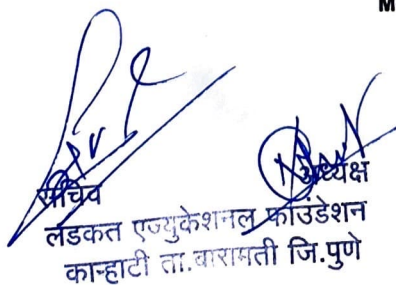 M
सचिव अध्यक्ष
लडकत एज्युकेशनल फाउंडेशन
कान्हाटी ता.बारामती जि.पुणे